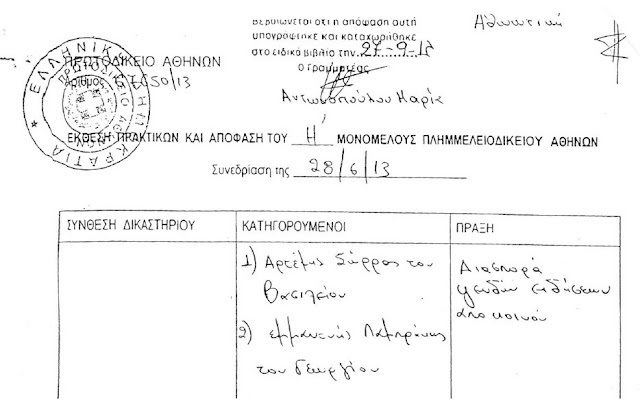 Αθωωτική
Βεβαιώνεται ότι η απόφαση αυτή
υπογράφηκε και καταχωρήθηκε
στο ειδικό βιβλίο την 27-9-13
Ο Γραμματέας
Αντωνοπούλου Μαρία
ΕΛΛΗΝΙΚΗ ΔΗΜΟΚΡΑΤΙΑ
ΠΡΩΤΟΔΙΚΕΙΟ ΑΘΗΝΩΝ
ΠΡΩΤΟΔΙΚΕΙΟ ΑΘΗΝΩΝ
Αριθμος 50/13
ΕΚΘΕΣΗ ΠΡΑΚΤΙΚΩΝ ΚΑΙ ΑΠΟΦΑΣΗ ΤΟΥ Η' ΜΟΝΟΜΕΛΟΥΣ ΠΛΗΜΜΕΛΕΙΟΔΙΚΕΙΟΥ ΑΘΗΝΩΝ
Συνεδρίαση της 28/6/13
ΣΥΝΘΕΣΗ ΔΙΚΑΣΤΗΡΙΟΥ ΚΑΤΗΓΟΡΟΥΜΕΝΟΙ ΠΡΑΞΗ
1) Αρτέμης Σώρρας του
Βασιλείου
2) Εμμανουήλ Λαμπράκης
του Γεωργίου
Διασπορά
ψευδών ειδήσεων
από κοινού